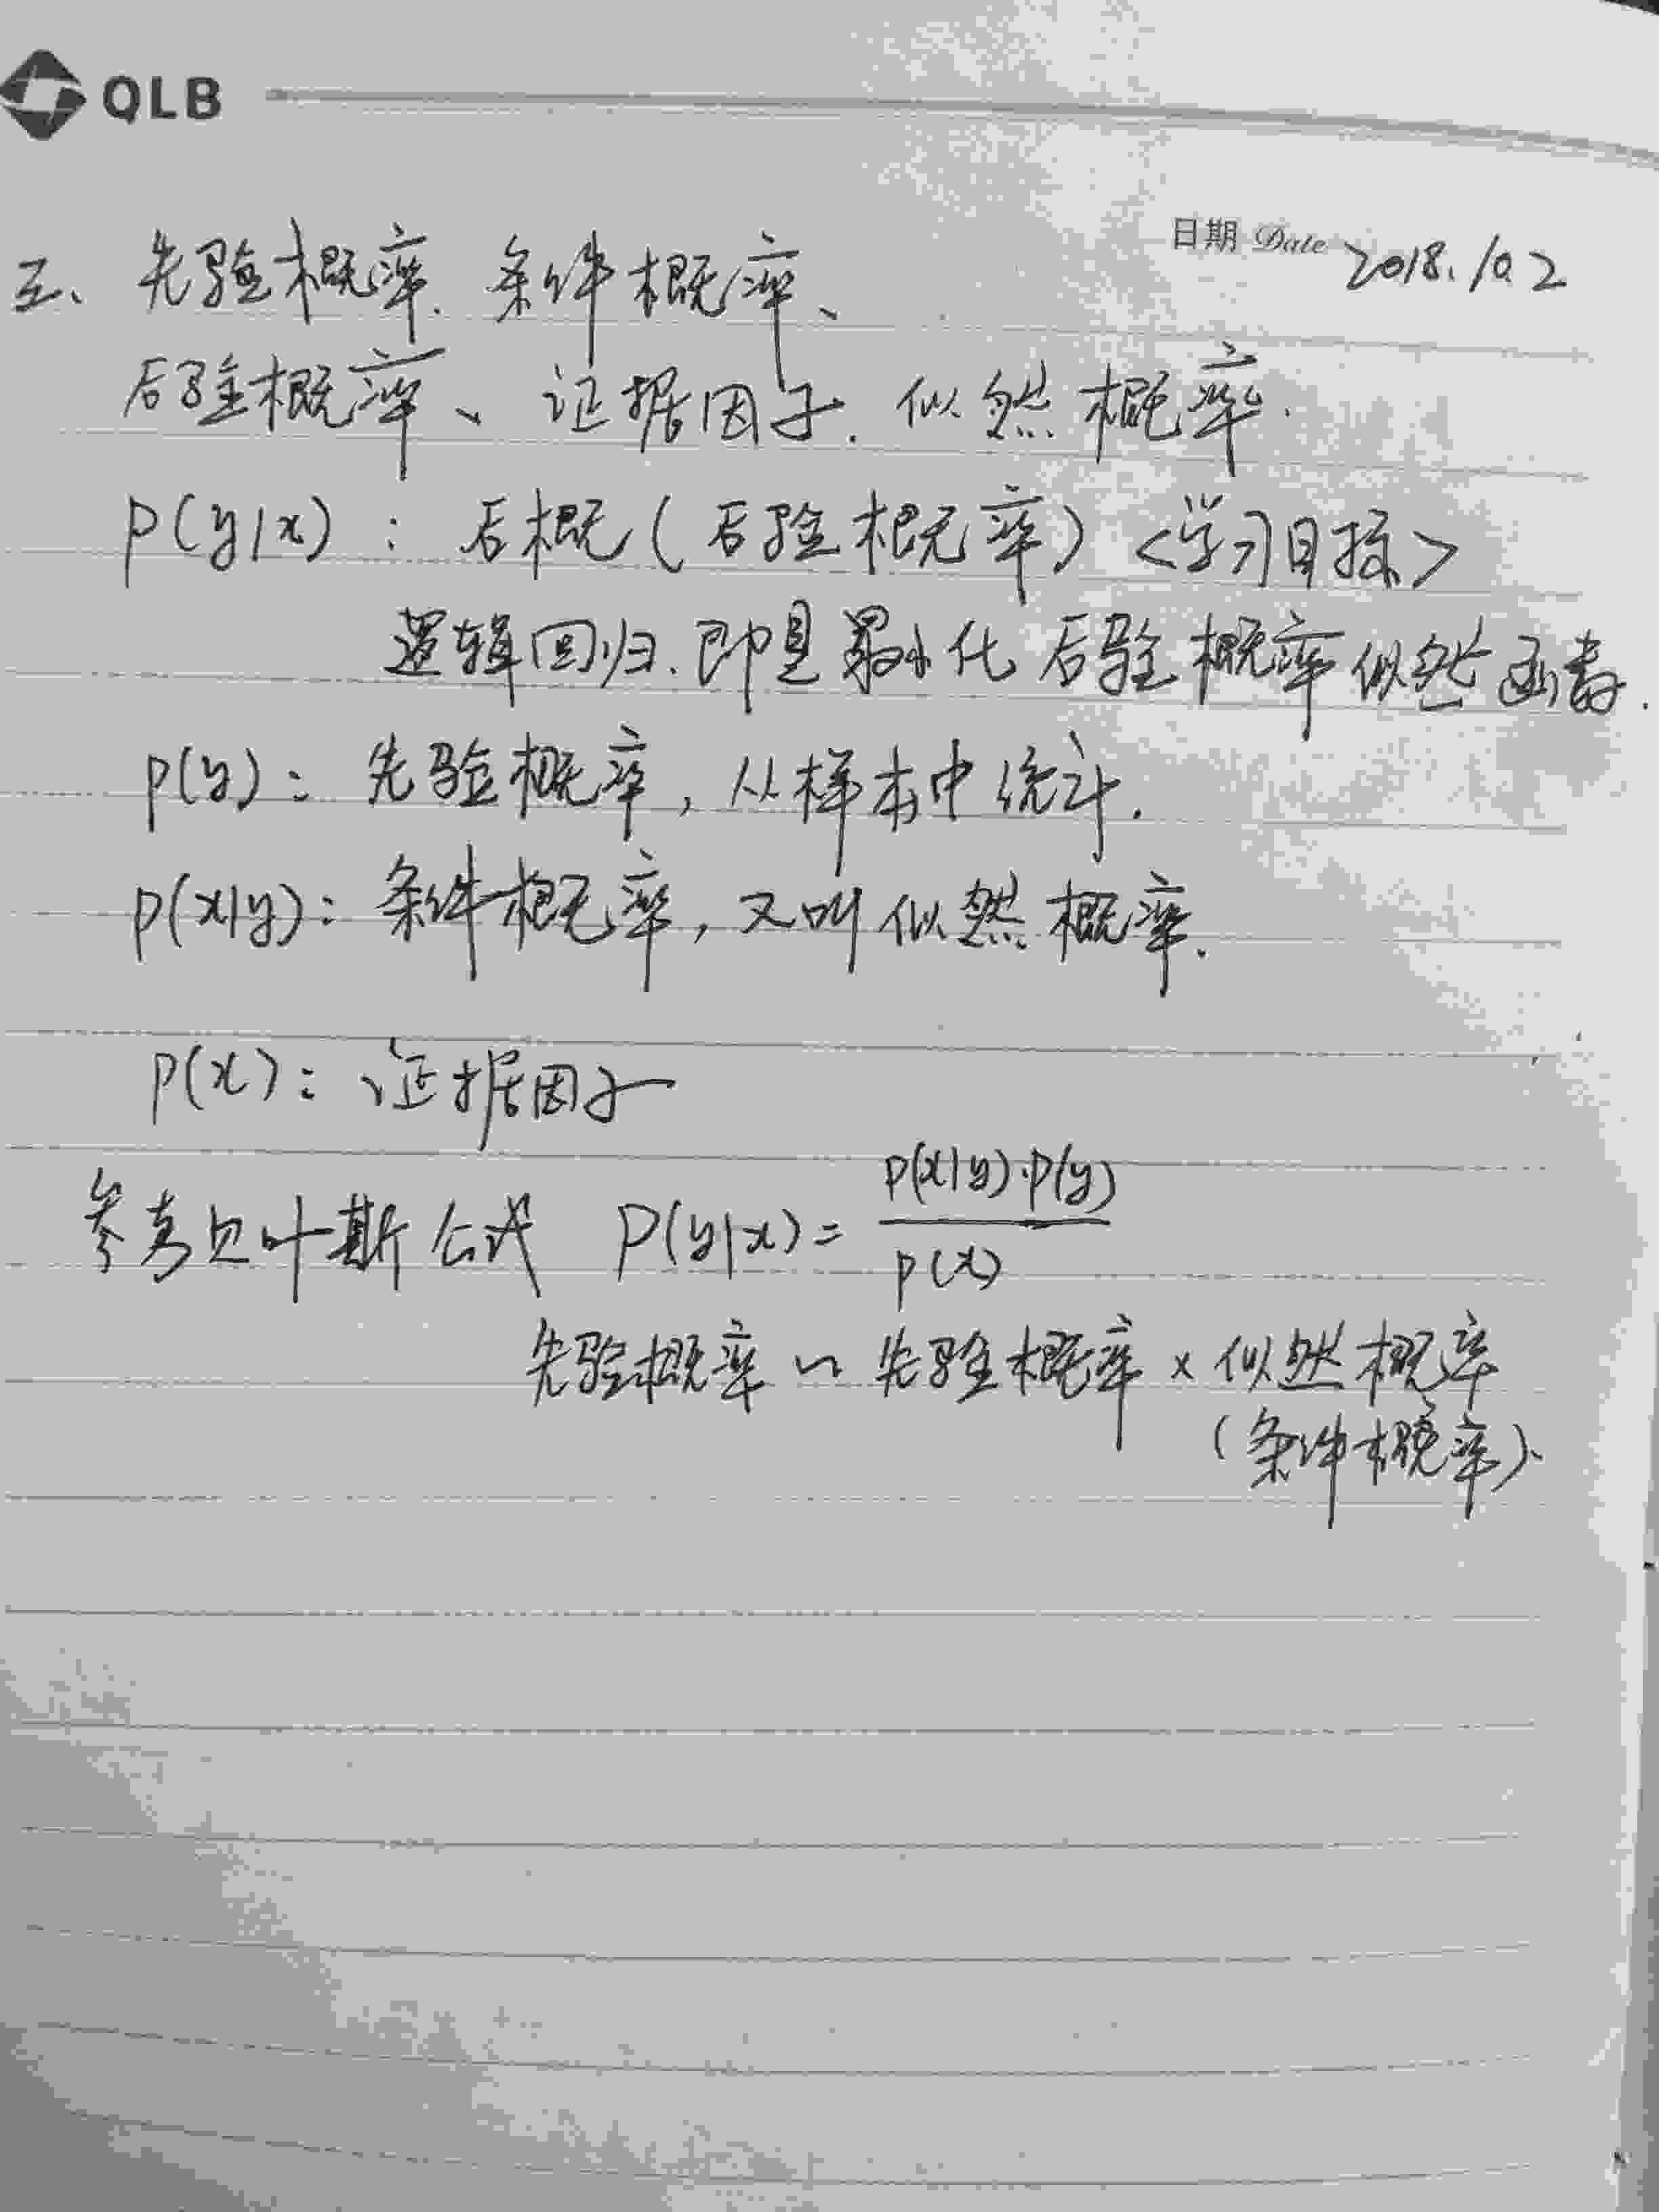 QLB
日期 Date 2018.10.2
五、先验概率. 条件概率、
后验概率、证据因子. 似然概率.
P(y|x): 后概(后验概率) <学习目标>
逻辑回归. 即是最小化后验概率似然函数.
p(y): 先验概率, 从样本中统计.
p(x|y): 条件概率, 又叫似然概率.
P(x): 证据因子
参考贝叶斯公式 P(y|x) = p(x|y)·p(y) / p(x)
先验概率 ∽ 先验概率 × 似然概率
(条件概率).